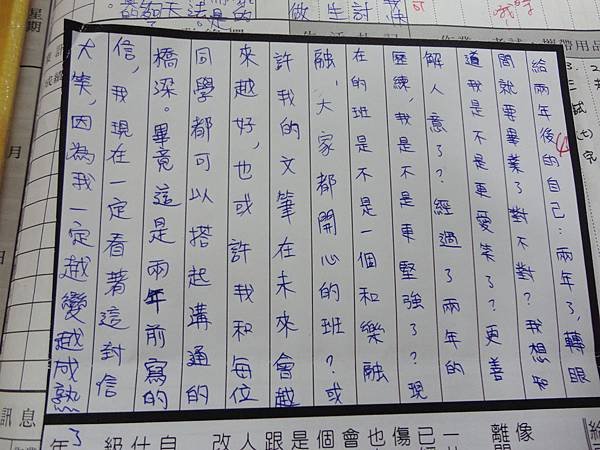 給兩年後的自己：兩年了，轉眼
間就要畢業了對不對？我想知
道我是不是更愛笑了？更善
解人意了？經過了兩年的
歷練，我是不是更堅強了？現
在的班是不是一個和樂融
融，大家都開心的班？或
許我的文筆在未來會越
來越好，也或許我和每位
同學都可以搭起溝通的
橋梁。畢竟這是兩年前寫的
信，我現在一定看著這封信
大笑，因為我一定越變越成熟
了
攜帶用品
星期
月
日
訊息